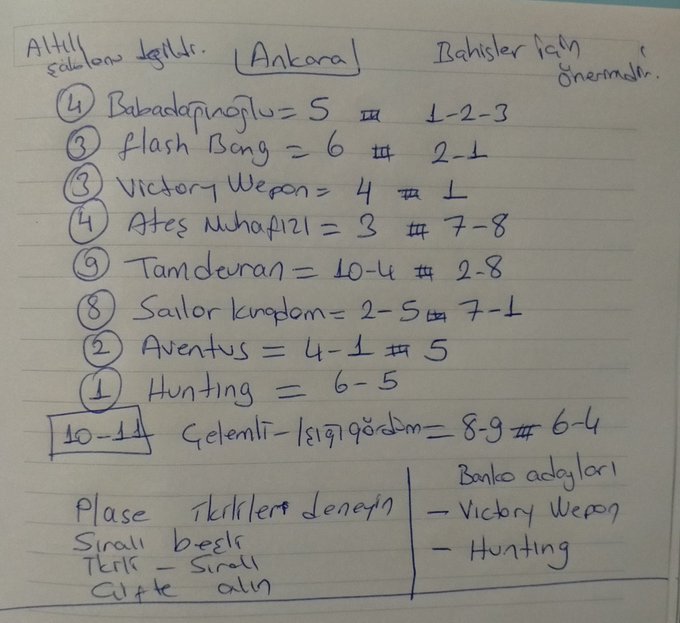 Altılı
şablonu değildir.
Ankara
Bahisler için
önermedir.
4 Babadağınoğlu = 5 # 1-2-3
3 Flash Bang = 6 # 2-1
3 Victory Wepon = 4 # 1
4 Ateş Muhafızı = 3 # 7-8
9 Tamdevran = 10-4 # 2-8
8 Sailor kıngdom = 2-5 # 7-1
2 Aventus = 4-1 # 5
1 Hunting = 6-5
10-11 Çelemli-Işığıgördüm = 8-9 # 6-4
Plase ikilileri deneyin
Sıralı beşli
İkili - Sıralı
Çifte alın
Banko adayları
- Victory Wepon
- Hunting